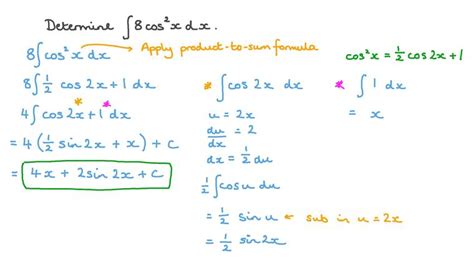 Determine ∫ 8cos²x dx.
8∫cos²x dx → Apply product-to-sum formula
cos²x = ½ cos2x + 1
8∫ ½ cos 2x + 1 dx
4∫ cos 2x + 1 dx
= 4 ( ½ sin 2x + x ) + c
= 4x + 2sin 2x + c
* ∫ cos 2x dx
u = 2x
du/dx = 2
dx = ½ du
½ ∫ cos u du
= ½ sin u ← sub in u = 2x
= ½ sin 2x
* ∫ 1 dx
= x